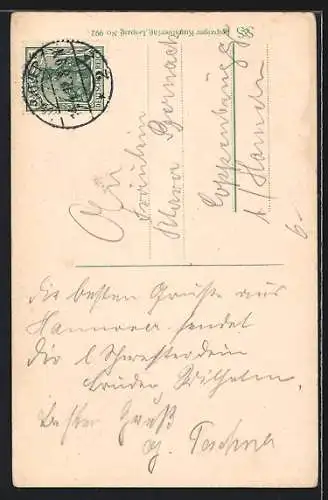 Leipziger Kunstverlag, Leipzig No 992
HANNOVER
An
Fräulein
Klara
Coppenbrügge
b/ Hameln
6-
Die besten Grüße aus
Hannover sendet
Dir l. Schwester dein
Bruder Wilhelm.
Besten Gruß